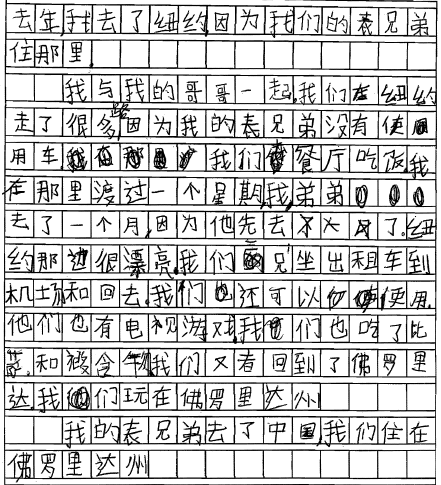 去年,我去了纽约,因为我们的表兄弟
住那里.
我与我的哥哥一起.我们在纽约
走了很多路因为我的表兄弟没有使
用车.我们餐厅吃饭.我
在那里渡过一个星期.我弟弟
去了一个月,因为他先去了.纽
约那边很漂亮.我们坐出租车到
机场和回去.我们也还可以使用
他们也有电视游戏.我们也吃了比
萨,和被含我们又者回到了佛罗里
达.我们玩在佛罗里达州
我的表兄弟去了中国,我们住在
佛罗里达州